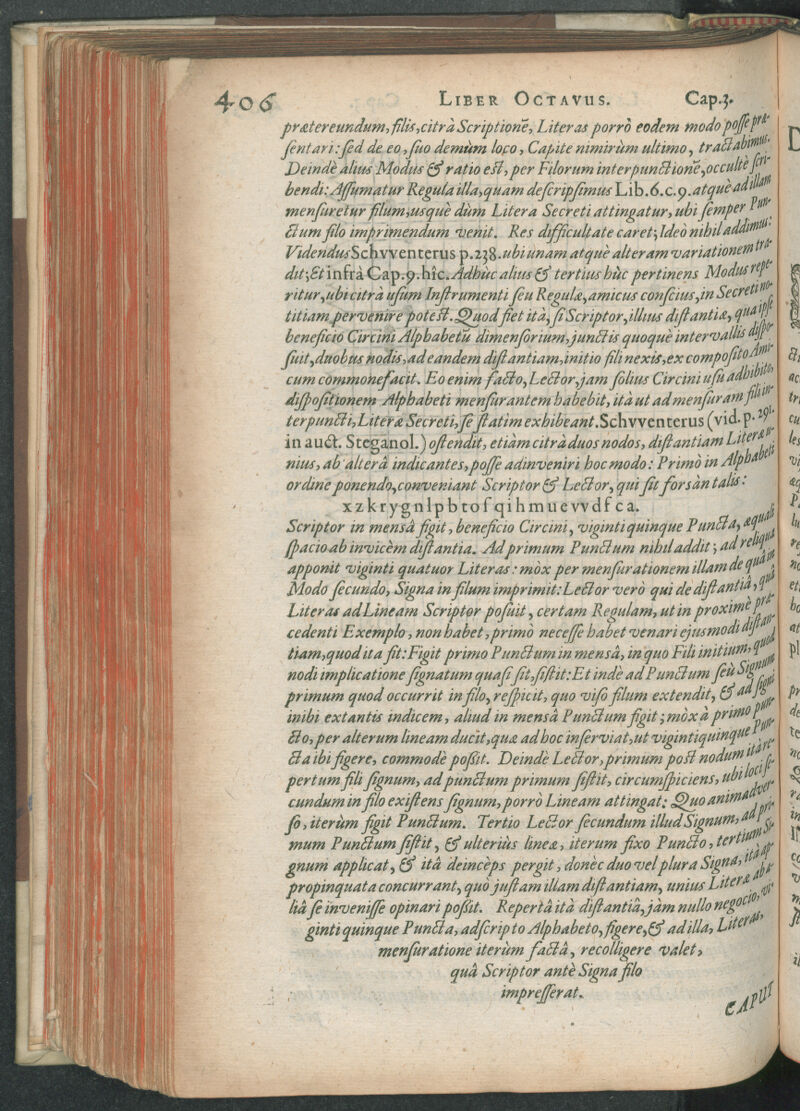 406 LIBER OCTAVUS. Cap.3.
prætereundum, filis, citrà Scriptionē, Literas porrò eodem modo posse præ-
sentari: sed de eo, suo demùm loco, Capite nimirùm ultimo, tractabimus.
Deindè alius Modus & ratio est, per Filorum interpunctionē, occultè scri-
bendi: Assumatur Regula illa, quam descripsimus Lib.6.c.9. atquè ad illam
mensuretur filum, usquè dùm Litera Secreti attingatur, ubi semper Pun-
ctum filo imprimendum venit. Res difficultate caret; Ideò nihil addimus:
Videndus Schvventerus p.238. ubi unam atquè alteram variationem tra-
dit; & infrà Cap.9. hîc. Adhùc alius & tertius hùc pertinens Modus repe-
ritur, ubi citrà usum Instrumenti seu Regulæ, amicus conscius, in Secreti no-
titiam pervenire potest. Quod fiet ità, si Scriptor, illius distantiæ, quà ipse
beneficiò Circini Alphabetū dimensorium, junctis quoquè intervallis dispo-
suit, duobus nodis, ad eandem distantiam, initio fili nexis, ex composito Ami-
cum commonefacit. Eo enim facto, Lector, jam solius Circini usu adhibito,
dispositionem Alphabeti mensurantem habebit, ità ut ad mensuram fili in-
terpuncti, Literæ Secreti, se statim exhibeant. Schvventerus (vid. p. 291.
in auct. Steganol.) ostendit, etiàm citrà duos nodos, distantiam Literæ u-
nius, ab alterâ indicantes, posse adinveniri hoc modo: Primò in Alphabeti
ordine ponendo, conveniant Scriptor & Lector, qui sit forsàn talis:
xzkrygnlpbtofqihmuevvdfca.
Scriptor in mensâ figit, beneficio Circini, viginti quinque Puncta, æquali
spacio ab invicèm distantia. Ad primum Punctum nihil addit; ad reliqua
apponit viginti quatuor Literas: mòx per mensurationem illam de quâ in
Modo secundo, Signa in filum imprimit: Lector verò qui de distantiâ, quâ
Literas ad Lineam Scriptor posuit, certam Regulam, ut in proximè præ-
cedenti Exemplo, non habet, primò necesse habet venari ejusmodi distan-
tiam, quod ita fit: Figit primo Punctum in mensâ, in quo Fili initium, quod
nodi implicatione signatum quasi sit, sistit: Et indè ad Punctum seu Signum
primum quod occurrit in filo, respicit, quo viso filum extendit, & ad signi
inibi extantis indicem, aliud in mensâ Punctum figit; mòx à primo pun-
cto, per alterum lineam ducit, quæ ad hoc inserviat, ut vigintiquinque Pun-
cta ibi figere, commodè possit. Deindè Lector, primum post nodum itâ re-
pertum fili signum, ad punctum primum sistit, circumspiciens, ubi loci se-
cundum in filo existens signum, porrò Lineam attingat: Quo animadver-
so, iterùm figit Punctum. Tertio Lector secundum illud Signum, ad pri-
mum Punctum sistit, & ulteriùs lineæ, iterum fixo Puncto, tertium Si-
gnum applicat, & ità deincèps pergit, donèc duo vel plura Signa, ità ap-
propinquata concurrant, quò justam illam distantiam, unius Literæ ab a-
liâ se invenisse opinari possit. Repertâ ità distantiâ, jàm nullo negocio, vi-
ginti quinque Puncta, adscripto Alphabeto, figere, & ad illa, Literas,
mensuratione iterùm factâ, recolligere valet,
quâ Scriptor antè Signa filo
impresserat.
CAPUT